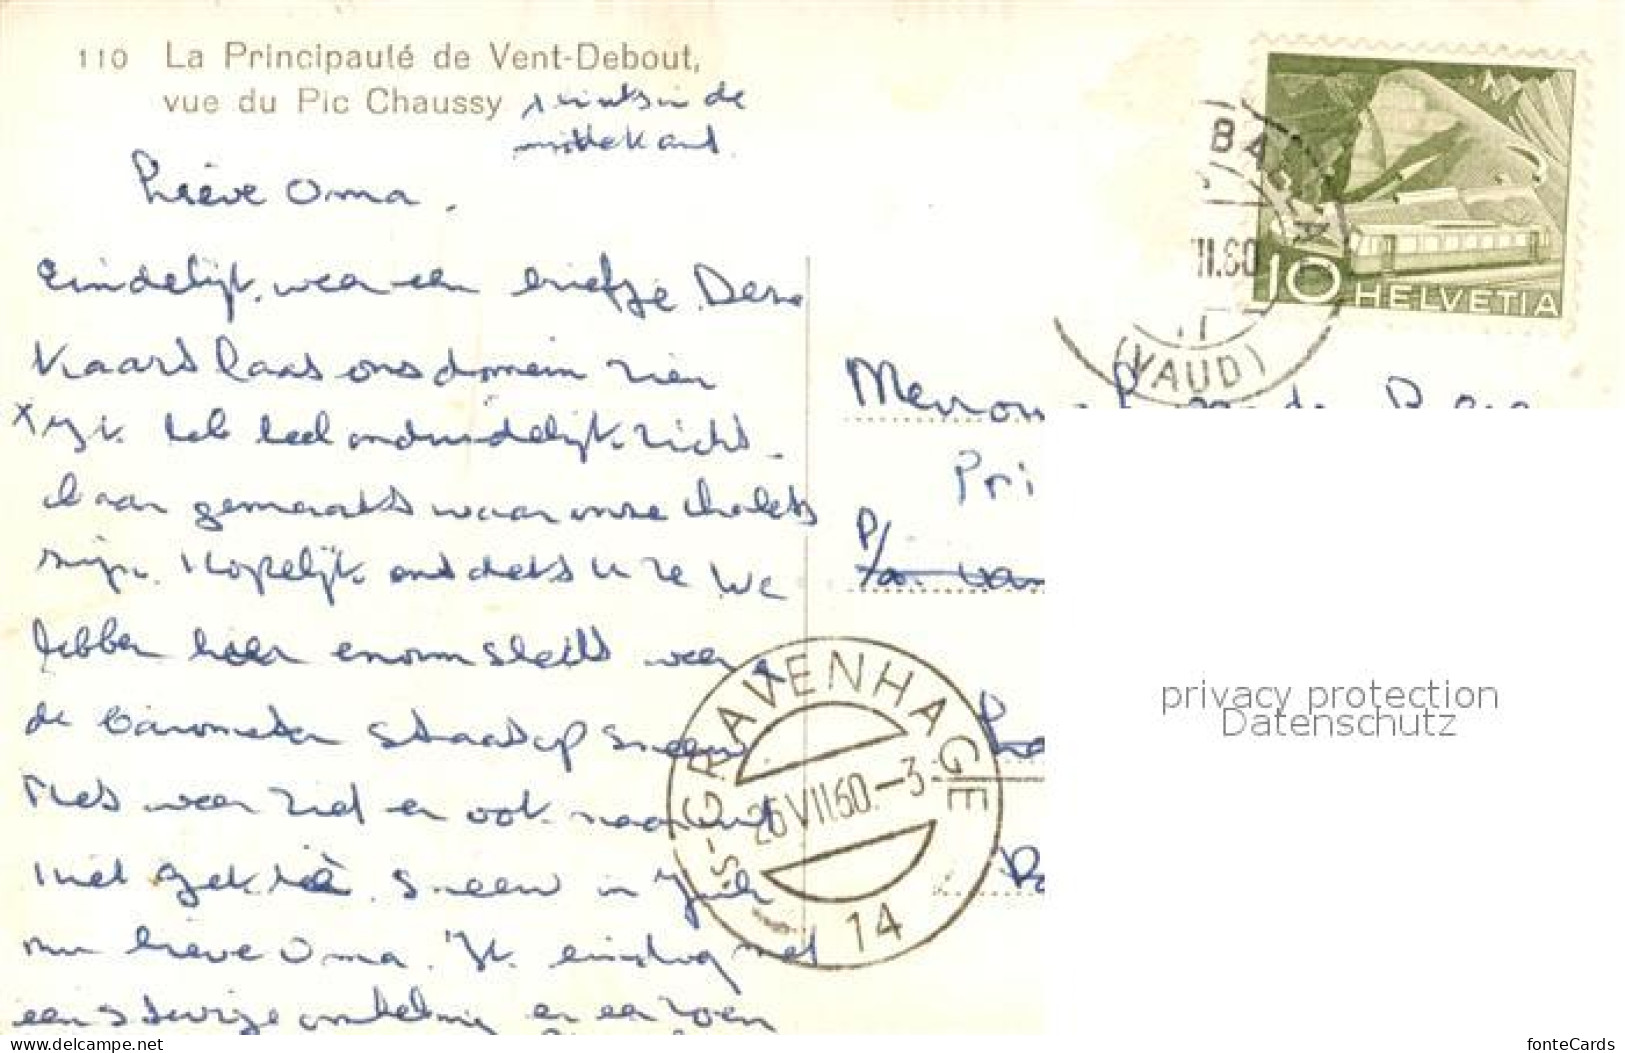 110 La Principauté de Vent-Debout,
vue du Pic Chaussy
Lieve Oma,
Eindelijk weer een briefje. Deze
kaart laat ons domein zien
Ik heb heel onduidelijk zicht-
baar gemaakt waar onze chalets
zijn. Hopelijk ontdekt u ze. We
hebben hier enorm slecht weer
de barometer staat op sneeuw
niet gek hè. Sneeuw in Juli
nu lieve Oma. Ik eindig met
een stevige omhelzing en een zoen
BA
VII.60
(VAUD)
10 HELVETIA
Pri
P/a
's-GRAVENHAGE
26 VII60.-3
14
privacy protection
Datenschutz
www.delcampe.net
fonteCards